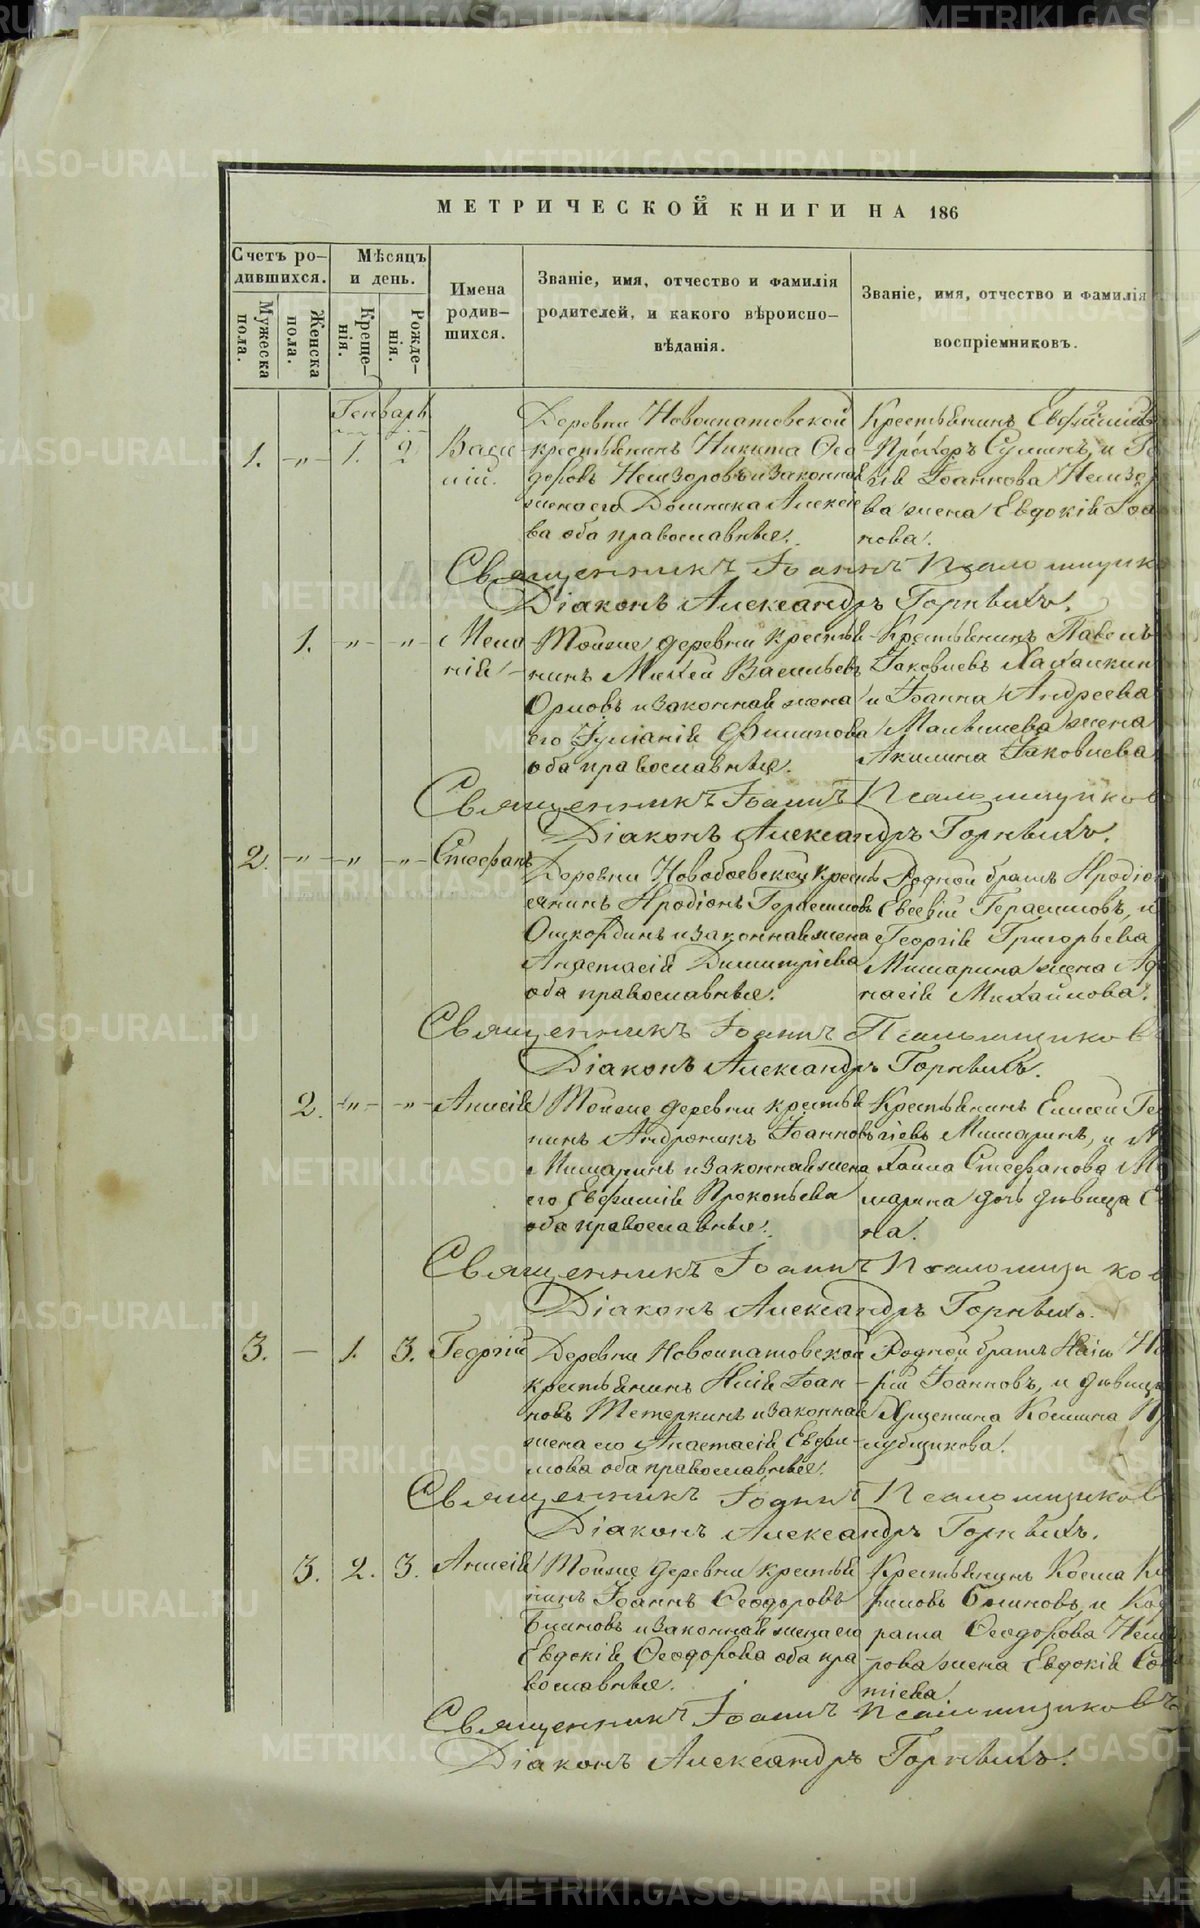 МЕТРИЧЕСКОЙ КНИГИ НА 186
Счетъ ро-
дившихся.
Мѣсяцъ
и день.
Мужеска
пола.
Женска
пола.
Креще-
нія.
Рожде-
нія.
Имена
родив-
шихся.
Званіе, имя, отчество и фамилія
родителей, и какого вѣроиспо-
вѣданія.
Званіе, имя, отчество и фамилія
воспріемниковъ.
Генварь
1. -„- 1. 2
Васи
лій.
Деревни Новоипатовской
крестьянинъ Никита Ѳео
доровъ и законная
жена его Домника Алексіе
ва оба православныя.
Крестьянинъ
Прохоръ и
Іоаннова
ва жена Евдокія Іоа
нова.
Священникъ Іоаннъ
Діаконъ Александръ Горныхъ.
1. -„- -„-
Мела
нія
Тойже деревни крестья
нинъ Михей Васильевъ
Орловъ и законная жена
его Іуліанія Филипова
оба православныя.
Крестьянинъ Павелъ
Іаковлевъ
и Іоанна Андреева
Малышева жена
Акилина Іаковлева
Священникъ Іоаннъ Псаломщиков
Діаконъ Александръ Горныхъ.
2. -„- -„- -„-
Стефанъ
Деревни Новобоевской кресть
янинъ Иродіонъ Герасимовъ
и законная жена
Анастасія Димитріева
оба православныя.
Родной братъ Иродіон
Евсевій Герасимовъ, и
Георгія Григорьева
Мишарина жена
насія Михайлова.
Священникъ Іоаннъ Псаломщиков
Діаконъ Александръ Горныхъ.
2. -„- -„-
Анисія
Тойже деревни крестья
нинъ Андроникъ Іоанновъ
Мишаринъ и законная жена
его Евфимія Прокопьева
оба православныя.
Крестьянинъ Елисей Ге
гіевъ Мишаринъ, и
Стефанова М
шарина дочь дѣвица
на.
Священникъ Іоаннъ Псаломщиков
Діаконъ Александръ Горныхъ.
3. - 1. 3.
Георгій
Деревни Новоипатовской
крестьянинъ Илія Іоан
новъ Тетеркинъ и законная
жена его Анастасія Евфи-
мова оба православныя.
Родной братъ Иліи
кій Іоанновъ, и дѣвица
Христина Космина
лубщикова.
Священникъ Іоаннъ Псаломщиков
Діаконъ Александръ Горныхъ.
3. 2. 3.
Анисія
Тойже деревни крестья
нинъ Іоаннъ Ѳеодоровъ
Блиновъ и законная жена его
Евдокія Ѳеодорова оба пра
вославныя.
Крестьянинъ Косма
риловъ Блиновъ, и
рата Ѳеодорова
рова жена Евдокія
тіева.
Священникъ Іоаннъ Псаломщиковъ
Діаконъ Александръ Горныхъ.
METRIKI.GASO-URAL.RU